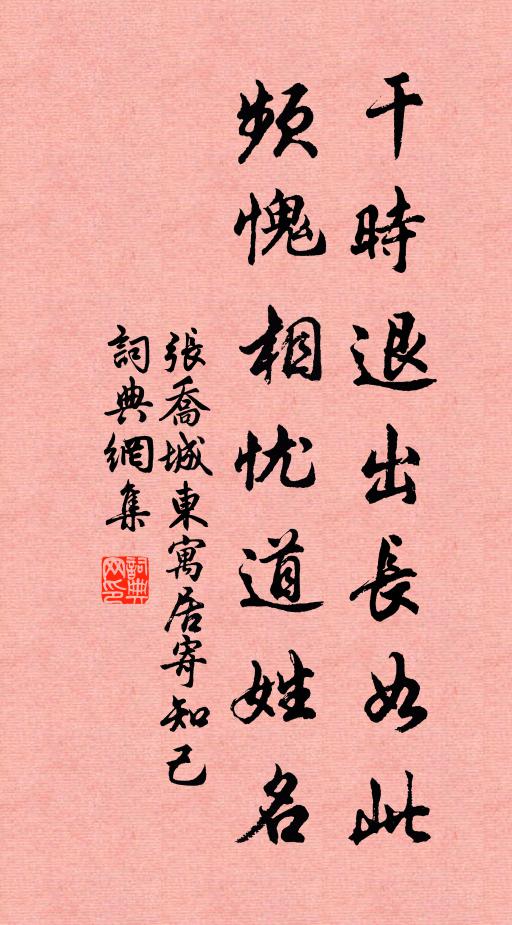 干時退出長如此
頻愧相忧道姓名
張喬城東寓居寄知己
詞典網集
詞典
网印